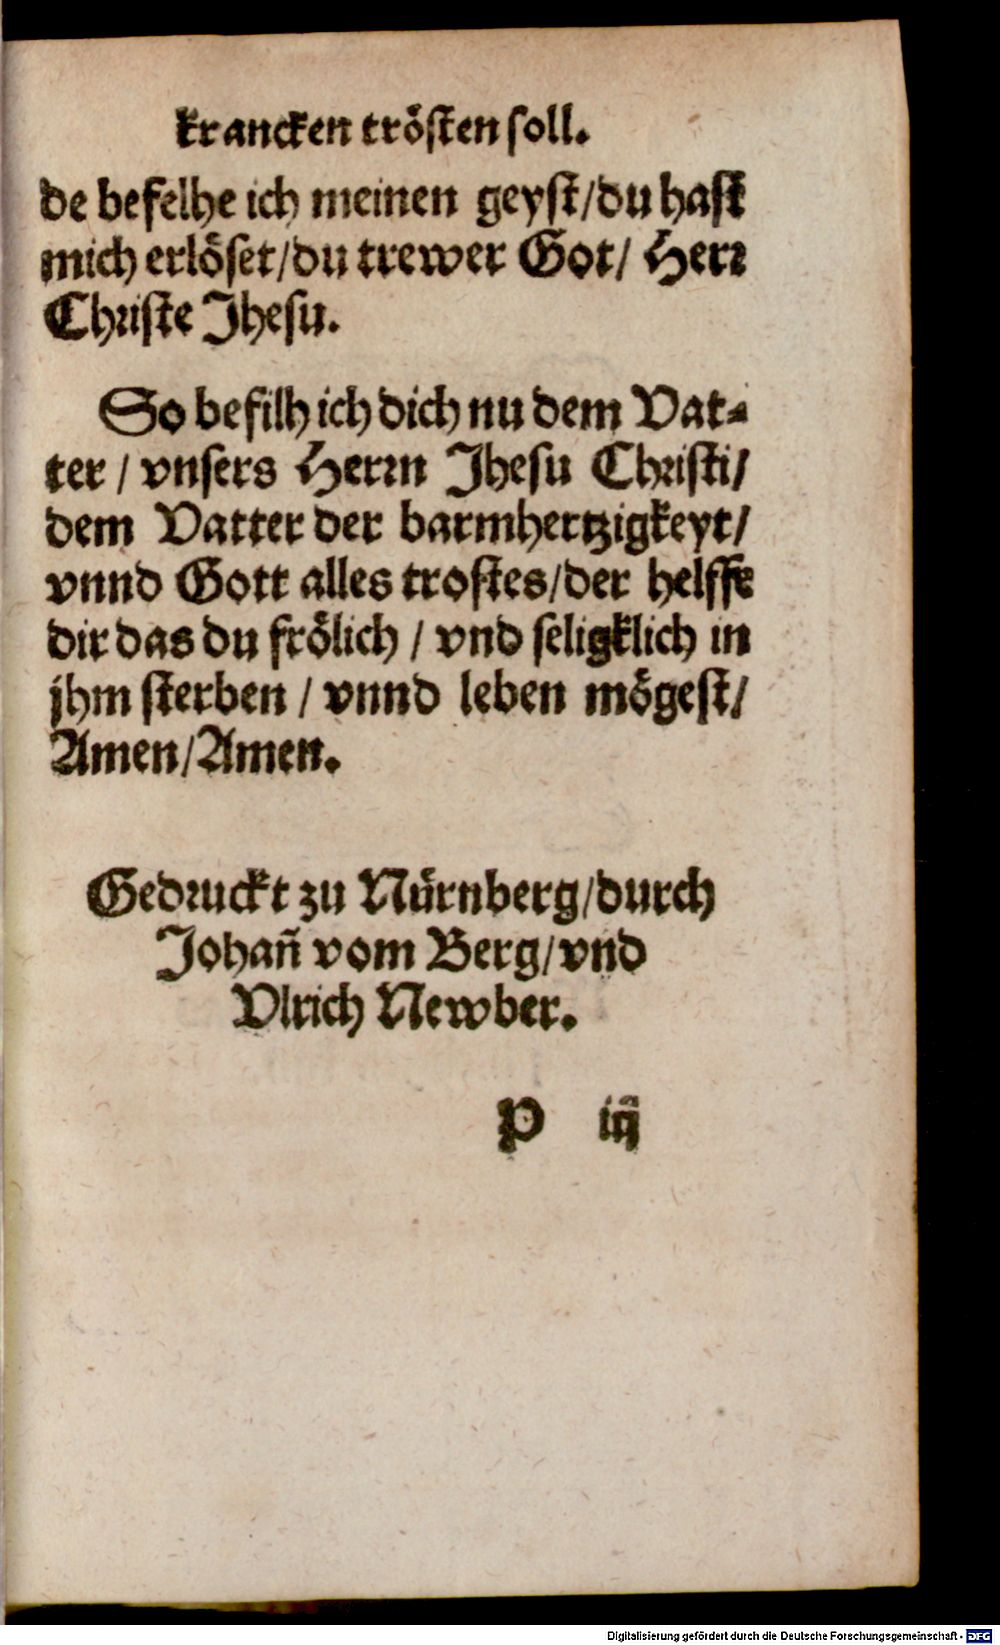 krancken trösten soll.
de befelhe ich meinen geyst/du hast
mich erlöset/du trewer Got/ Herr
Christe Jhesu.
So befilh ich dich nu dem Vat-
ter / vnsers Herrn Jhesu Christi/
dem Vatter der barmhertzigkeyt/
vnnd Gott alles trostes/der helffe
dir das du frölich / vnd seligklich in
jhm sterben / vnnd leben mögest/
Amen/Amen.
Gedruckt zu Nürnberg/durch
Johañ vom Berg/vnd
Vlrich Newber.
P iij
Digitalisierung gefördert durch die Deutsche Forschungsgemeinschaft - DFG